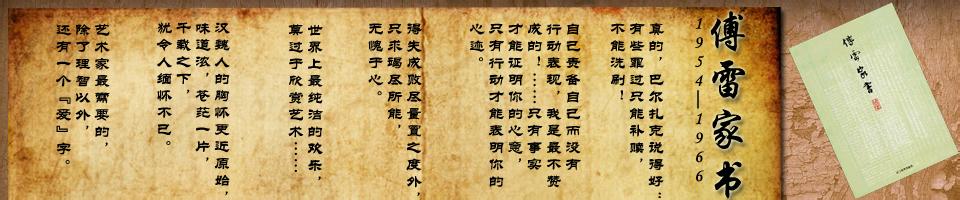 傅雷家书
1954—1966
真的，巴尔扎克说得好：
有些罪过只能补赎，
不能洗刷！
自己责备自己而没有
行动表现，我是最不赞
成的！……只有事实
才能证明你的心意，
只有行动才能表明你的
心迹。
得失成败尽量置之度外，
只求竭尽所能，
无愧于心。
世界上最纯洁的欢乐，
莫过于欣赏艺术……
汉魏人的胸怀更近原始，
味道浓，苍茫一片，
千载之下，
犹令人缅怀不已。
艺术家最需要的，
除了理智以外，
还有一个『爱』字。
傅雷家书